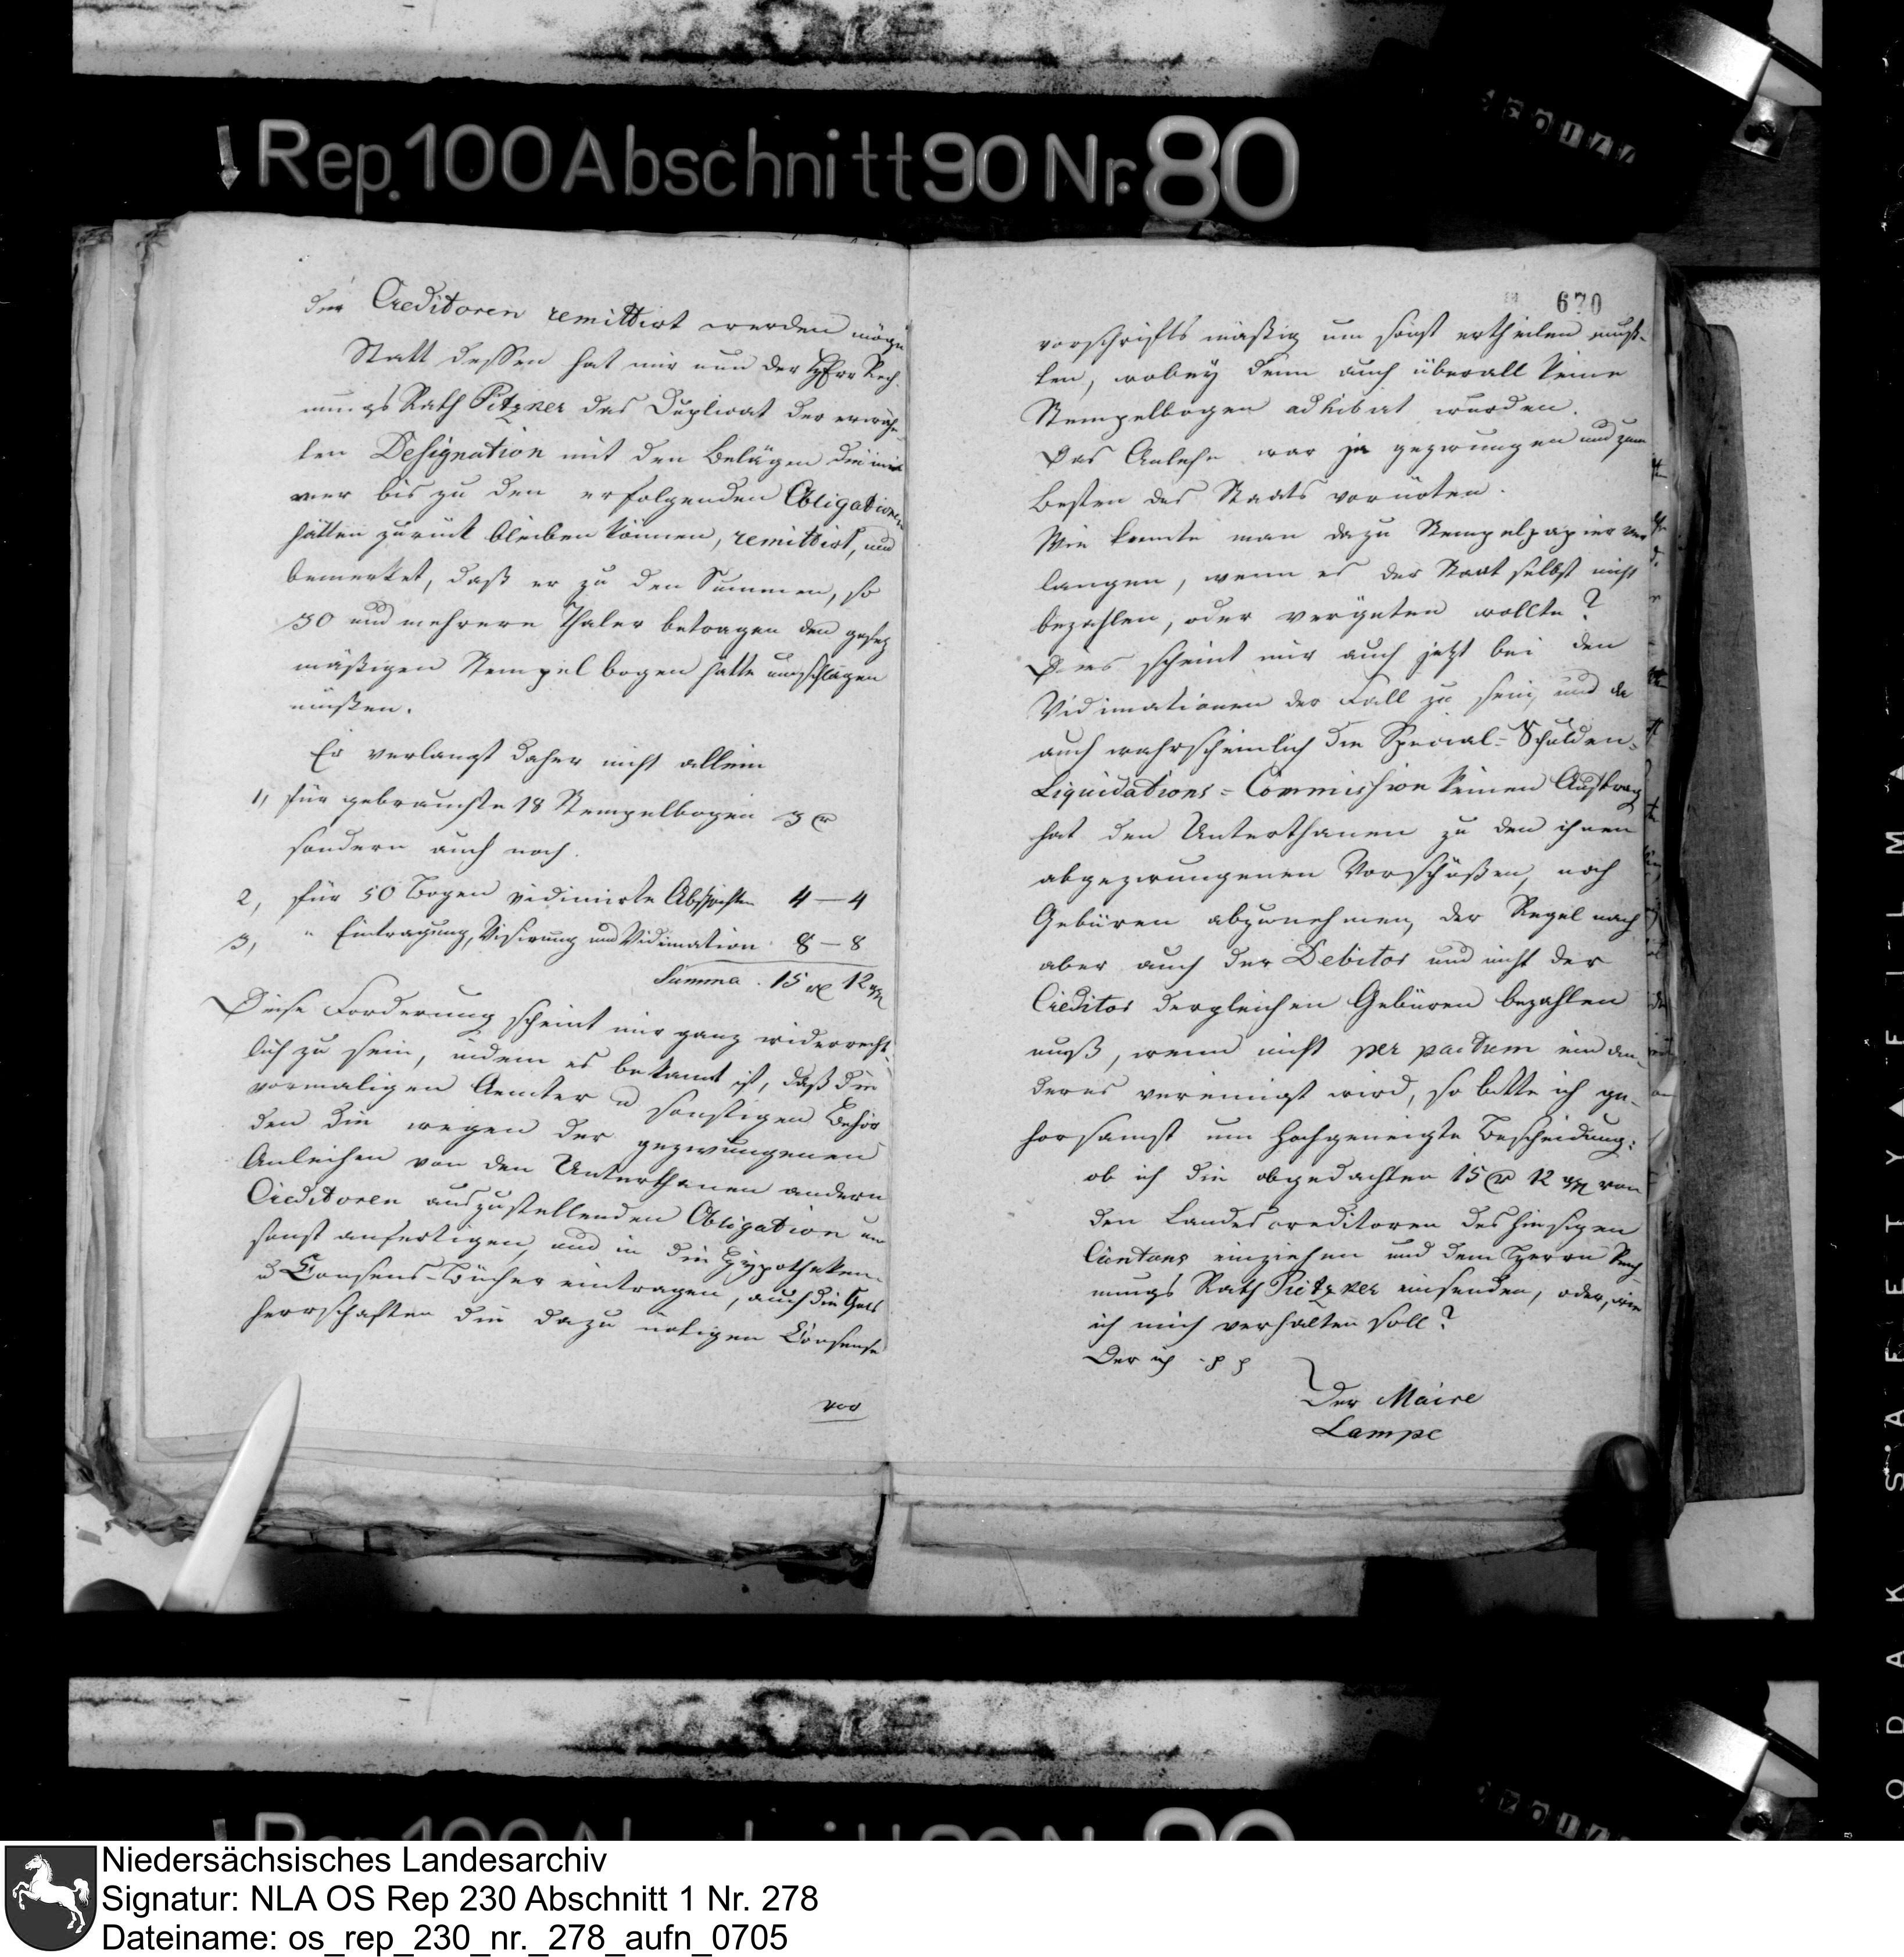 Rep. 100 Abschnitt 90 Nr. 80
der Creditoren remittirt werden möge
Statt dessen hat mir nun der Herr Rech-
nungs Rath Pitzker das Duplicat der erwähn-
ten Designation mit den Belägen die im-
mer bis zu den erfolgenden Obligationen
hätten zurück bleiben können, remittirt, und
bemerket, daß er zu den Summen, so
50 und mehrere Thaler betragen den gesetz
mäßigen Stempelbogen hätte umschlagen
müßen.
Er verlangt daher nicht allein
1, für gebrauchte 18 Stempelbogen 3 r
sondern auch noch.
2, für 50 Bogen vidimirte Abschriften 4 — 4
3, " Eintragung, Visirung und Vidimation 8 — 8
Summa . 15 r 12 ggr
Diese Forderung scheint mir ganz widerrecht-
lich zu sein, indem es bekannt ist, daß die
vormaligen Aemter u sonstigen Behör
den die wegen der gezwungenen
Anleihen von den Unterthanen andern
Creditoren auszustellenden Obligation um
sonst anfertigen, und in die Hypotheken-
u Consens-Bücher eintragen, auch die Guts
herrschaften die dazu nötigen Consense
vor
670
vorschrifts mäßig um sonst ertheilen muß-
ten, wobey denn auch überall keine
Stempelbogen adhibirt wurden.
Das Anlehn war ja gezwungen und zum
Besten des Staats vonnöten.
Wie konnte man dazu Stempelpapier ver
langen, wenn es der Staat selbst nicht
bezahlen, oder vergüten wollte?
Dies scheint mir auch jetzt bei den
Vidimationen der Fall zu sein, und da
auch wahrscheinlich die Special-Schulden-
Liquidations-Commission keinen Auftrag
hat den Unterthanen zu den ihnen
abgezwungenen Vorschüßen, noch
Gebüren abzunehmen, der Regel nach
aber auch der Debitor und nicht der
Creditor dergleichen Gebüren bezahlen
muß, wenn nicht per pactum ein an-
deres vereinigt wird, so bitte ich ge-
horsamst um hochgeneigte Bescheidung:
ob ich die abgedachten 15 r 12 ggr von
den Landescreditoren des hiesigen
Cantons einziehen und dem Herrn Rech-
nungs Rath Pietzker einsenden, oder, wie
ich mich verhalten soll?
Der ich p p
Der Maire
Lampe
Niedersächsisches Landesarchiv
Signatur: NLA OS Rep 230 Abschnitt 1 Nr. 278
Dateiname: os_rep_230_nr._278_aufn_0705